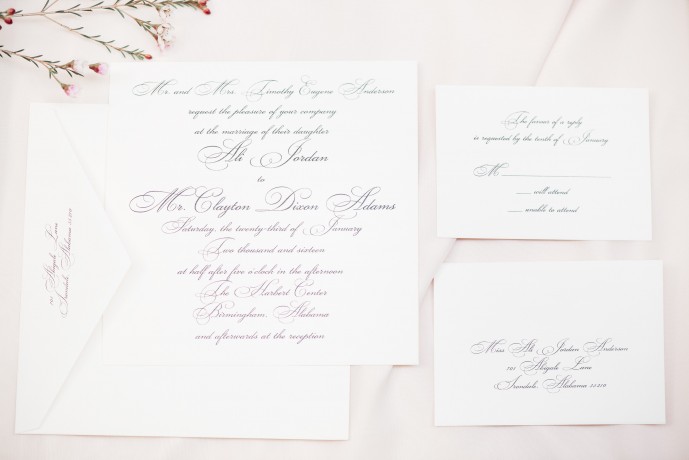 Mr. and Mrs. Timothy Eugene Anderson
request the pleasure of your company
at the marriage of their daughter
Ali Jordan
to
Mr. Clayton Dixon Adams
Saturday, the twenty-third of January
Two thousand and sixteen
at half after five o'clock in the afternoon
The Harbert Center
Birmingham, Alabama
and afterwards at the reception
Abigale Lane
Irondale, Alabama
The favour of a reply
is requested by the tenth of January
M
will attend
unable to attend
Miss Ali Jordan Anderson
Abigale Lane
Irondale, Alabama